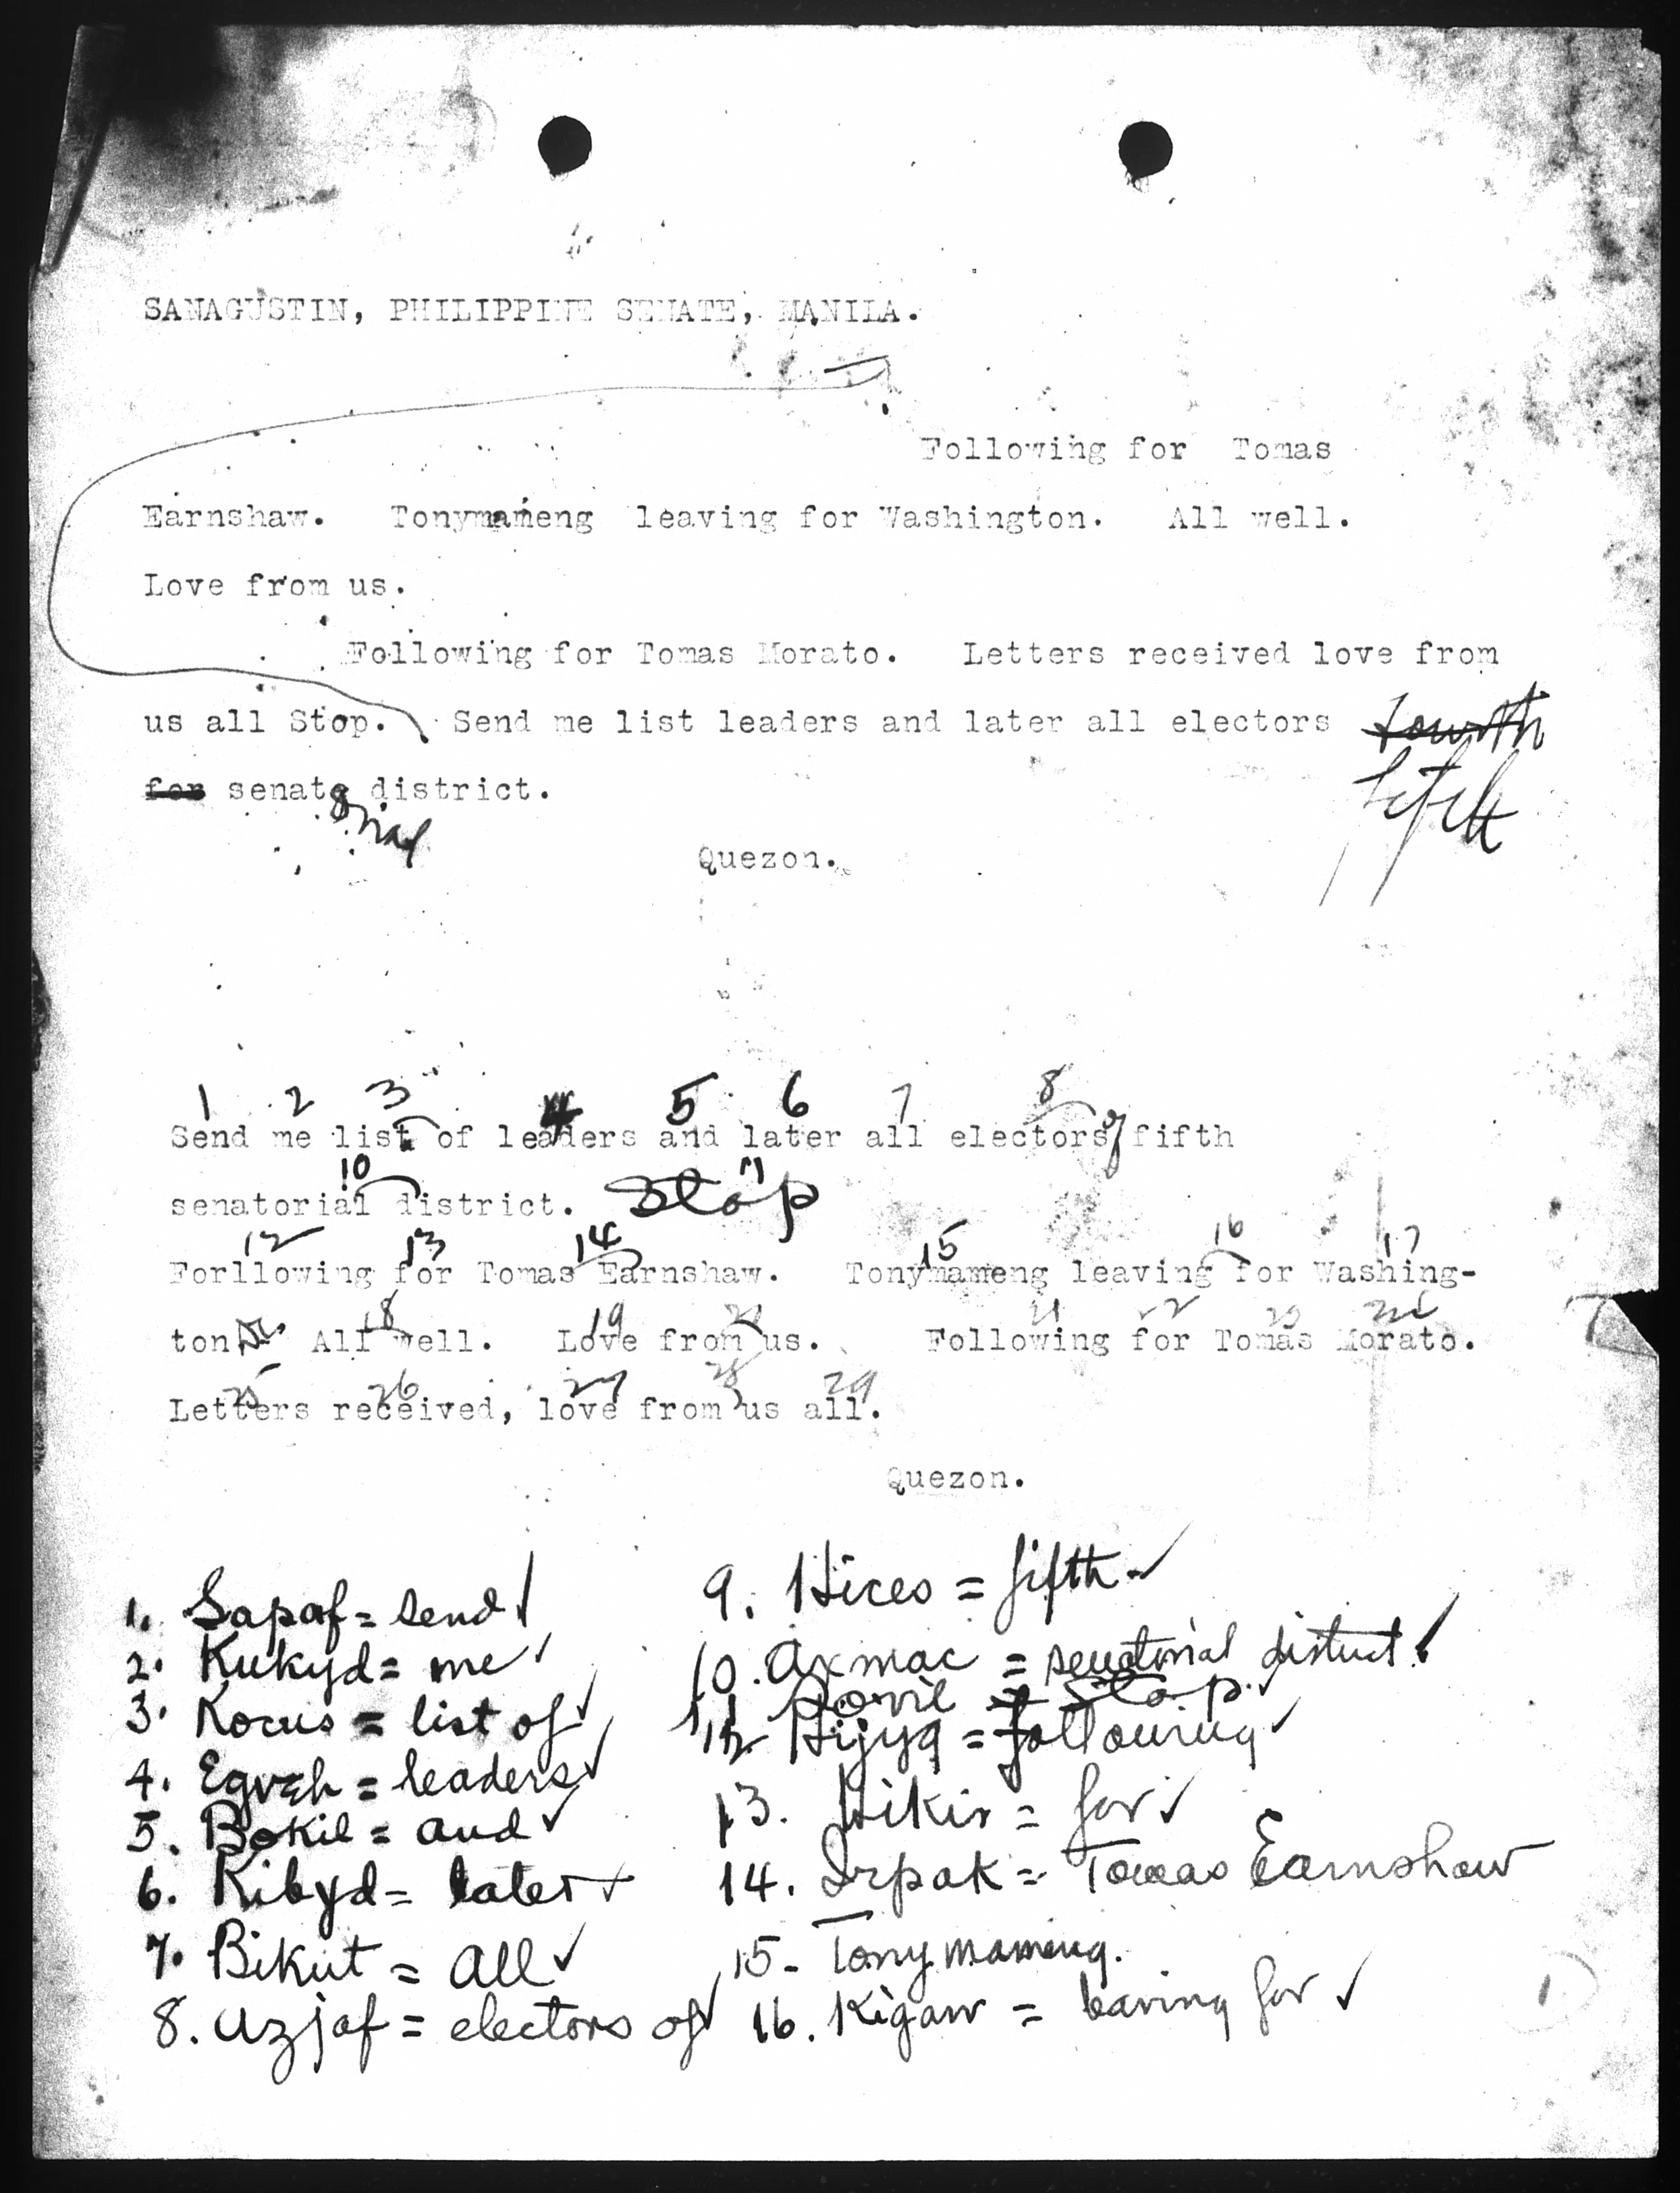 SANAGUSTIN, PHILIPPINE SENATE, MANILA.
Following for Tomas
Earnshaw. Tonymameng leaving for Washington. All well.
Love from us.
Following for Tomas Morato. Letters received love from
us all Stop. Send me list leaders and later all electors fourth
fifth
for senate district.
orial
Quezon.
1 2 3 4 5 6 7 8
Send me list of leaders and later all electors of fifth
10 11
senatorial district. Stop
12 13 14 15 16 17
Forllowing for Tomas Earnshaw. Tonymameng leaving for Washing-
18 19 21 22 23
ton. All well. Love from us. Following for Tomas Morato.
25 26 27 28 29
Letters received, love from us all.
Quezon.
1. Sapaf = send
2. Kukyd = me
3. Kocus = list of
4. Egveh = leaders
5. Bokil = and
6. Kibyd = later
7. Bikut = all
8. Uzjaf = electors of
9. Hices = fifth
10. Axmac = senatorial district
11 = Stop.
12 Hijyq = following
13. Hikir = for
14. Irpak = Tomas Earnshaw
15- Tonymameng.
16. Kigaw = leaving for
1